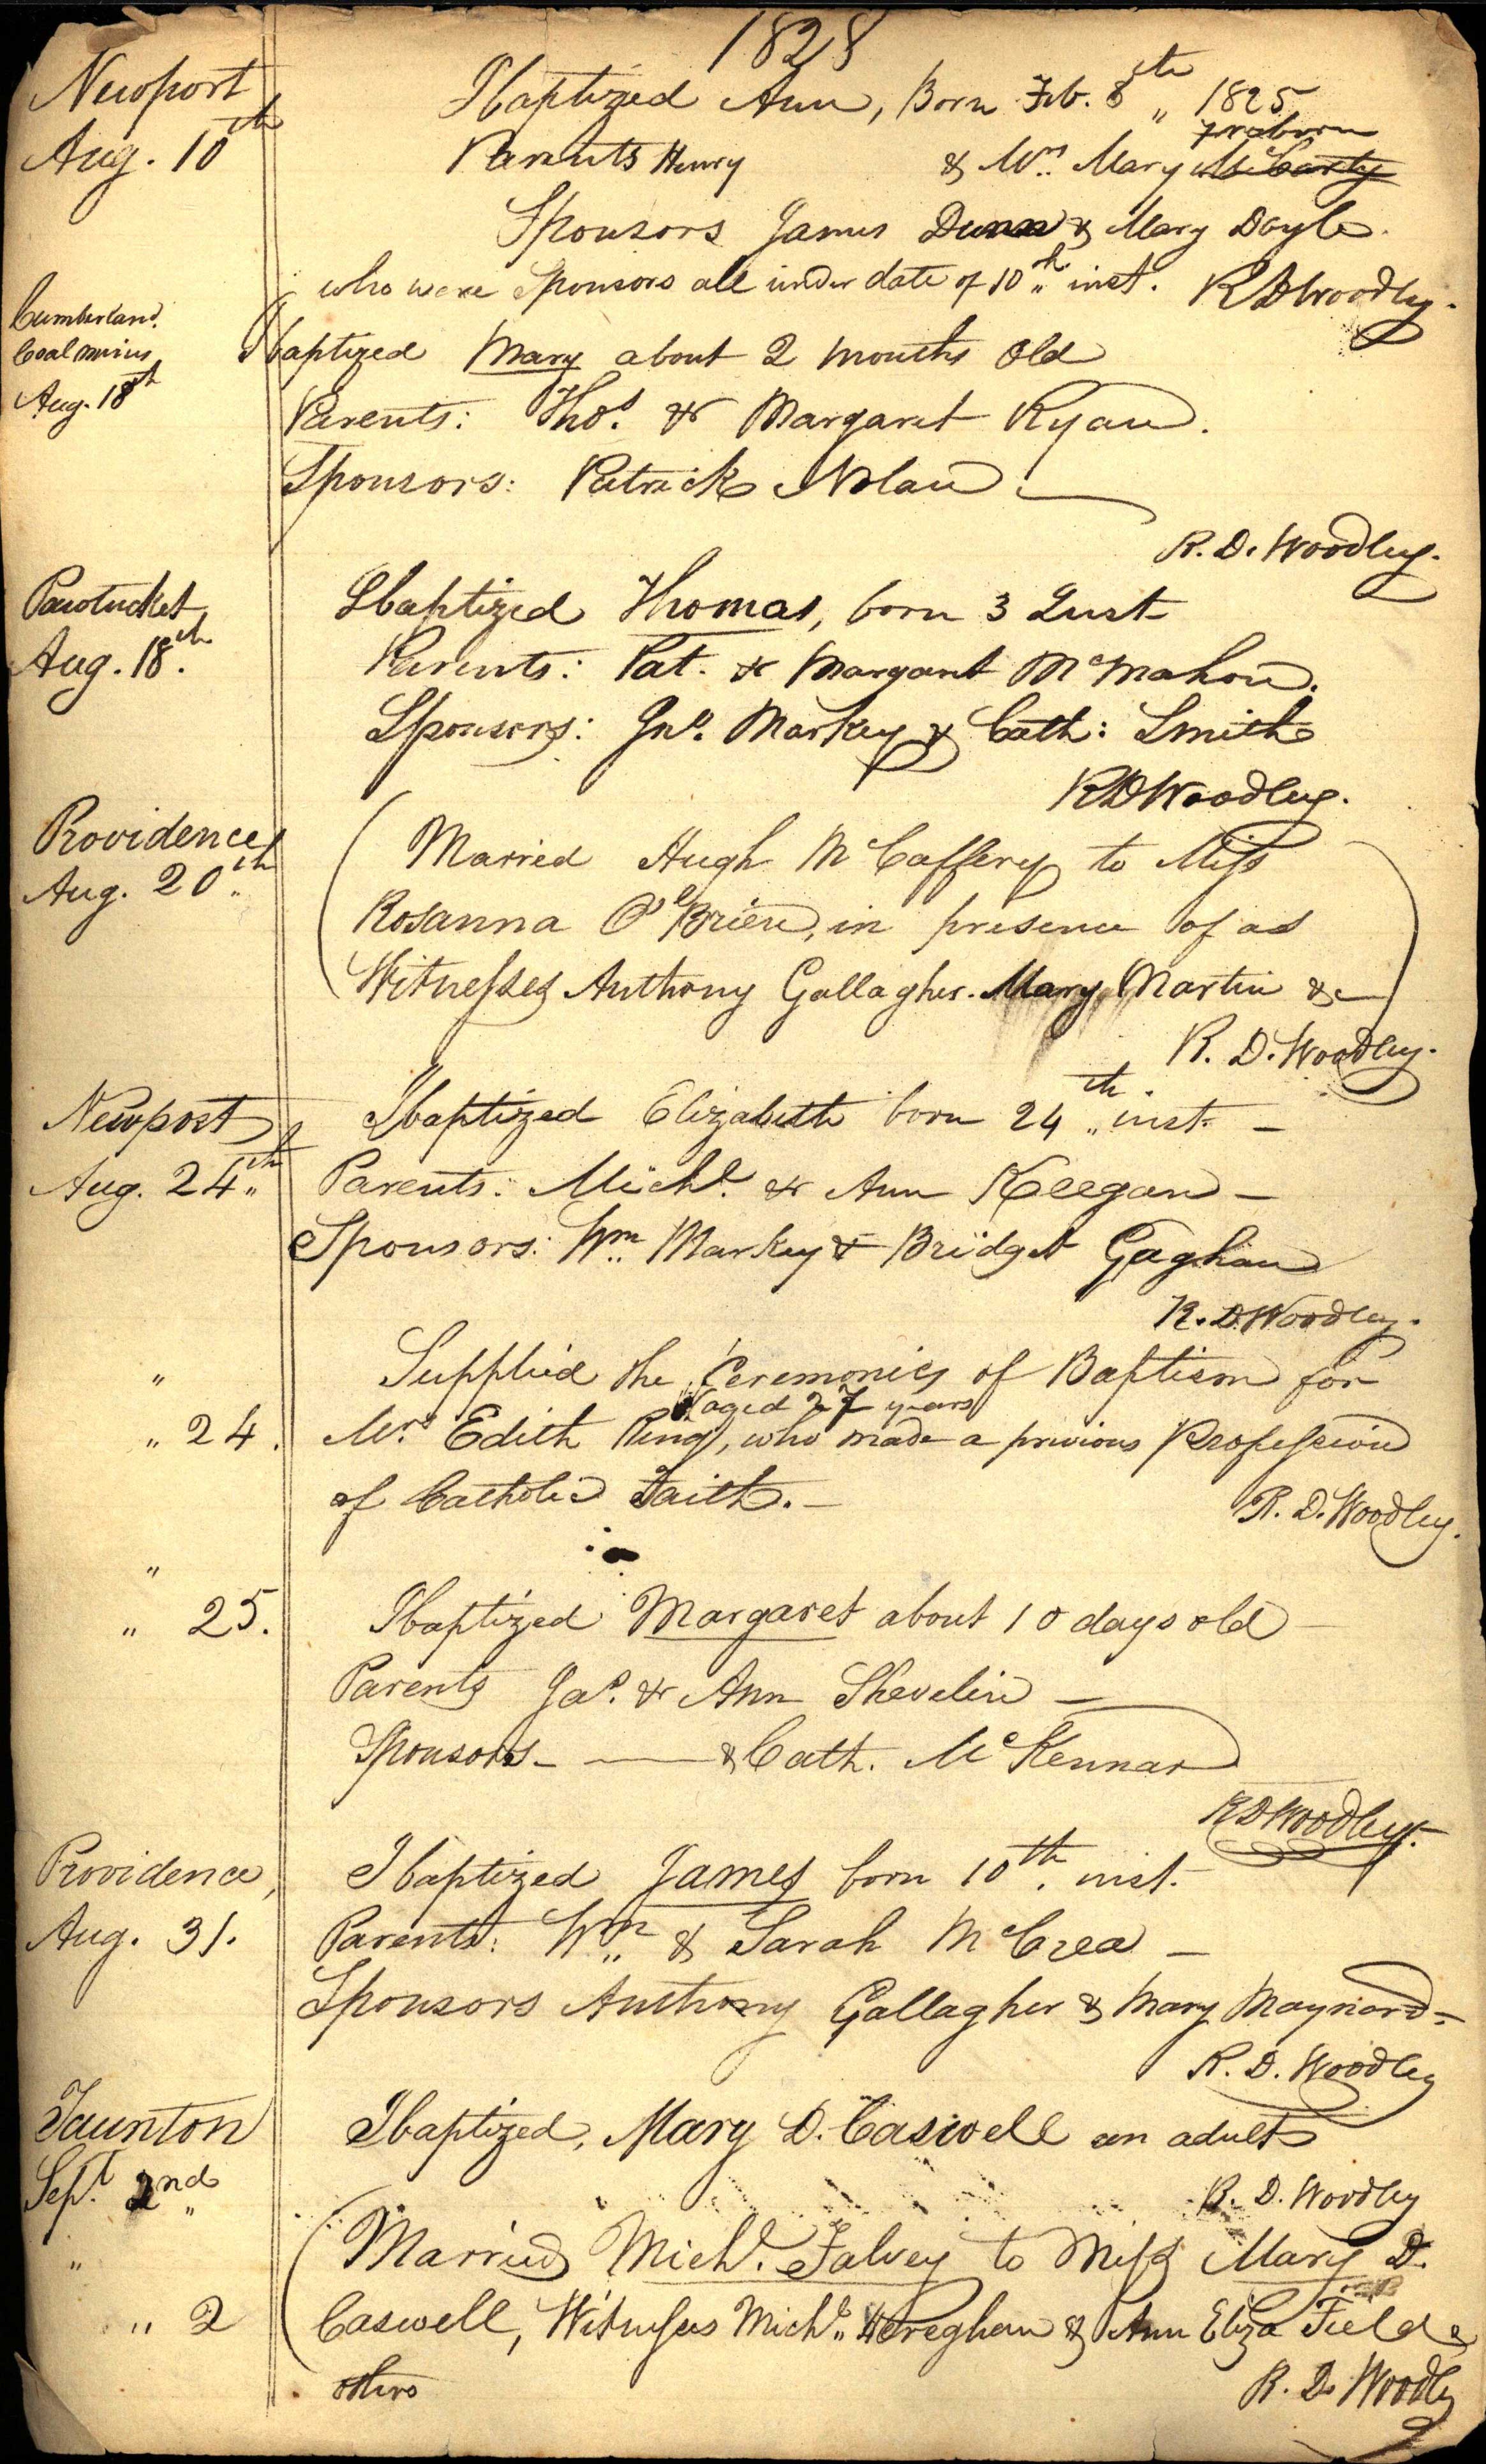 1828
Newport
Aug. 10th
I baptized Ann, Born Feb. 8th „ 1825
Parents Henry & Mrs. Mary McCarty
Sponsors James Dunn & Mary Doyle.
who were Sponsors all under date of 10th „ inst. R D Woodley.
Cumberland.
Coal mines
Aug. 18th
I baptized Mary about 2 months old
Parents: Thos. & Margaret Ryan.
Sponsors: Patrick Nolan —
R. D. Woodley.
Pawtucket
Aug. 18th.
I baptized Thomas, born 3 Inst
Parents: Pat. & Margaret McMahon.
Sponsors: Jno. Markey & Cath: Smith
R D Woodley.
Providence
Aug. 20th.
Married Hugh McCaffery to Miss
Rosanna O'Brien, in presence of as
Witnesses Anthony Gallagher. Mary Martin &c
R. D. Woodley.
Newport
Aug. 24th „
I baptized Elizabeth born 24th „ inst. —
Parents: Michl. & Ann Keegan —
Sponsors: Wm. Markey & Bridget Gaghan
R. D. Woodley.
„
„ 24.
Supplied the Ceremonies of Baptism for
aged 27 years
Mrs. Edith King, who made a privious Profession
of Catholic Faith. —
R. D. Woodley.
„
„ 25.
I baptized Margaret about 10 days old —
Parents Jas. & Ann Shevelin —
Sponsors — & Cath. McKennar
R D Woodley.
Providence,
Aug. 31.
I baptized James born 10th. inst.
Parents: Wm. & Sarah McCrea —
Sponsors Anthony Gallagher & Mary Maynard —
R. D. Woodley
Taunton
Sept. 2nd „
I baptized, Mary D. Caswell an adult
R. D. Woodley
„
„ 2
Married Michl. Falvey to Miss Mary D.
Caswell, Witnesses Michl. & Ann Eliza Field &
others
R. D. Woodley